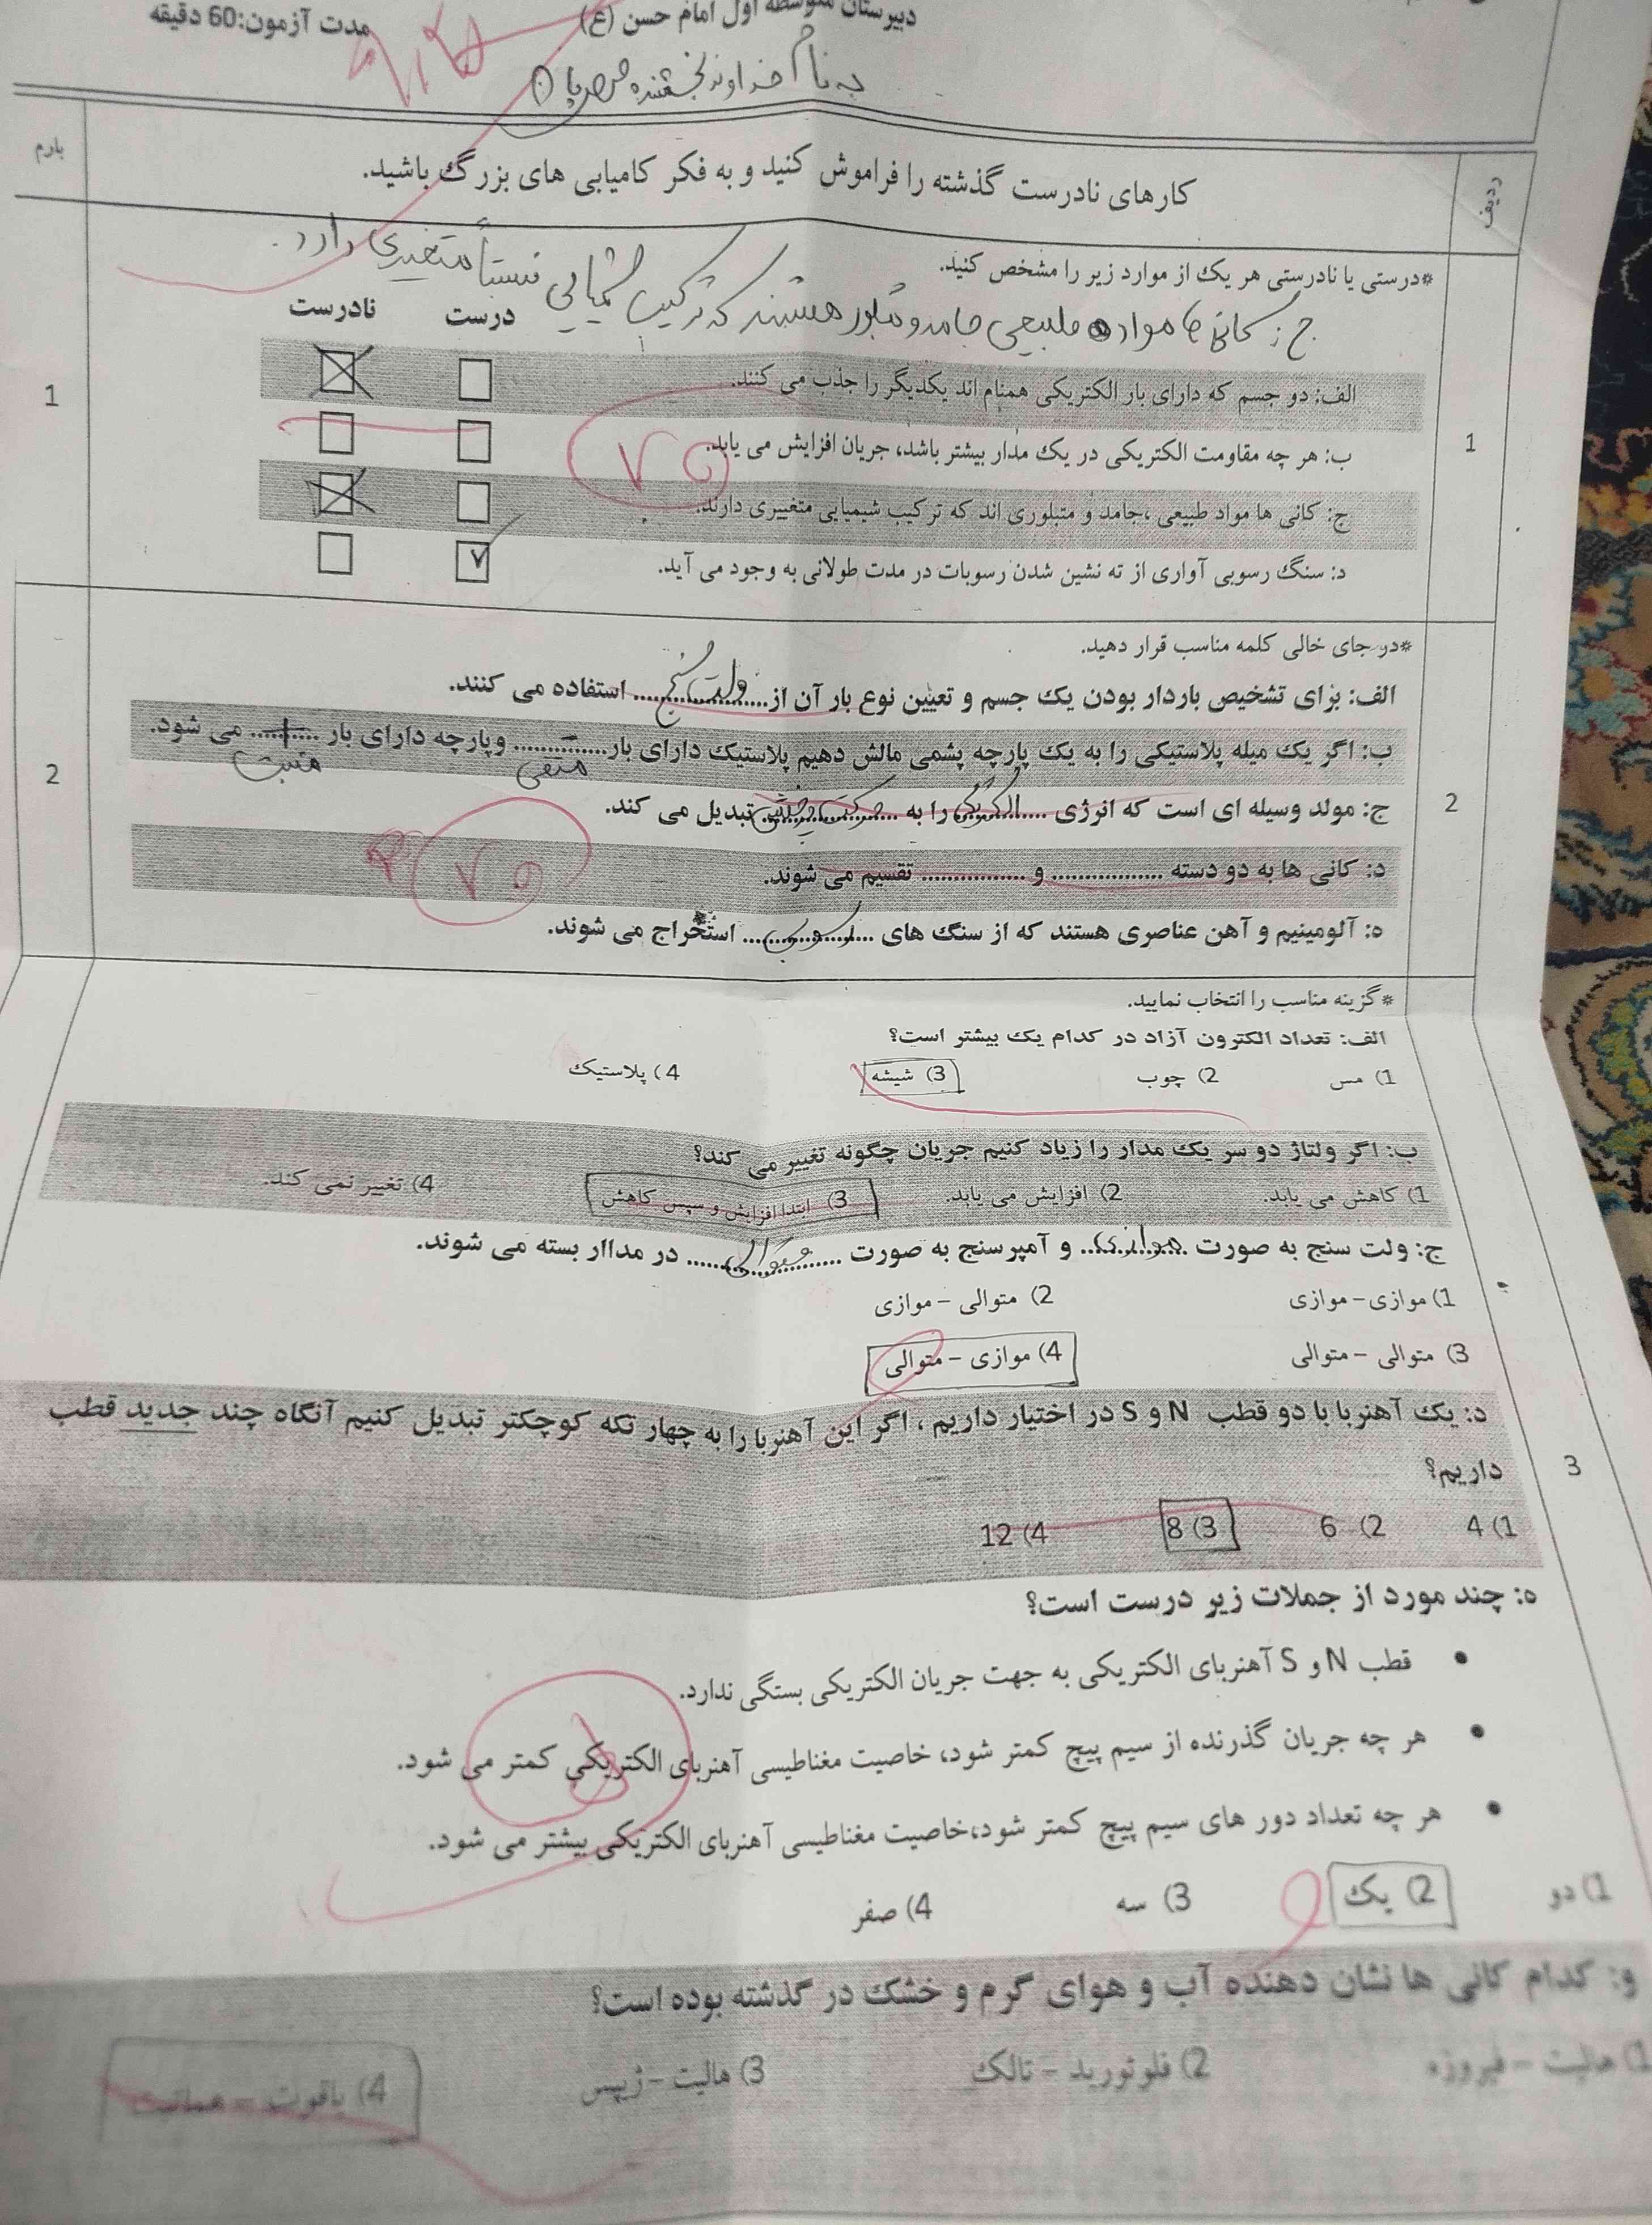 دبیرستان متوسطه اول امام حسن (ع)
مدت آزمون:60 دقیقه
به نام خداوند بخشنده مهربان
ردیف
کارهای نادرست گذشته را فراموش کنید و به فکر کامیابی های بزرگ باشید.
بارم
1
*درستی یا نادرستی هر یک از موارد زیر را مشخص کنید.
ج: کانی ها مواد طبیعی جامد و متبلور هستند که ترکیب شیمیایی نسبتاً متغیری دارد.
درست نادرست
الف: دو جسم که دارای بار الکتریکی همنام اند یکدیگر را جذب می کنند.
ب: هر چه مقاومت الکتریکی در یک مدار بیشتر باشد، جریان افزایش می یابد.
ج: کانی ها مواد طبیعی ،جامد و متبلوری اند که ترکیب شیمیایی متغییری دارند.
د: سنگ رسوبی آواری از ته نشین شدن رسوبات در مدت طولانی به وجود می آید.
1
2
*در جای خالی کلمه مناسب قرار دهید.
الف: برای تشخیص باردار بودن یک جسم و تعیین نوع بار آن از ولت سنج استفاده می کنند.
ب: اگر یک میله پلاستیکی را به یک پارچه پشمی مالش دهیم پلاستیک دارای بار............ وپارچه دارای بار ............ می شود.
منفی مثبت
ج: مولد وسیله ای است که انرژی الکتریکی را به تبدیل می کند.
د: کانی ها به دو دسته ................. و ................ تقسیم می شوند.
ه: آلومینیم و آهن عناصری هستند که از سنگ های رسوبی استخراج می شوند.
2
3
*گزینه مناسب را انتخاب نمایید.
الف: تعداد الکترون آزاد در کدام یک بیشتر است؟
1) مس 2) چوب 3) شیشه 4) پلاستیک
ب: اگر ولتاژ دو سر یک مدار را زیاد کنیم جریان چگونه تغییر می کند؟
1) کاهش می یابد. 2) افزایش می یابد. 3) ابتدا افزایش و سپس کاهش 4) تغییر نمی کند.
ج: ولت سنج به صورت موازی و آمپرسنج به صورت متوالی در مداار بسته می شوند.
1) موازی- موازی 2) متوالی - موازی
3) متوالی - متوالی 4) موازی - متوالی
د: یک آهنربا با دو قطب N و S در اختیار داریم ، اگر این آهنربا را به چهار تکه کوچکتر تبدیل کنیم آنگاه چند جدید قطب
داریم؟
1) 4 2) 6 3) 8 4) 12
ه: چند مورد از جملات زیر درست است؟
• قطب N و S آهنربای الکتریکی به جهت جریان الکتریکی بستگی ندارد.
• هر چه جریان گذرنده از سیم پیچ کمتر شود، خاصیت مغناطیسی آهنربای الکتریکی کمتر می شود.
• هر چه تعداد دور های سیم پیچ کمتر شود،خاصیت مغناطیسی آهنربای الکتریکی بیشتر می شود.
1) دو 2) یک 3) سه 4) صفر
و: کدام کانی ها نشان دهنده آب و هوای گرم و خشک در گذشته بوده است؟
1) هالیت - فیروزه 2) فلوئورید - تالک 3) هالیت - ژیپس 4) یاقوت - هماتیت